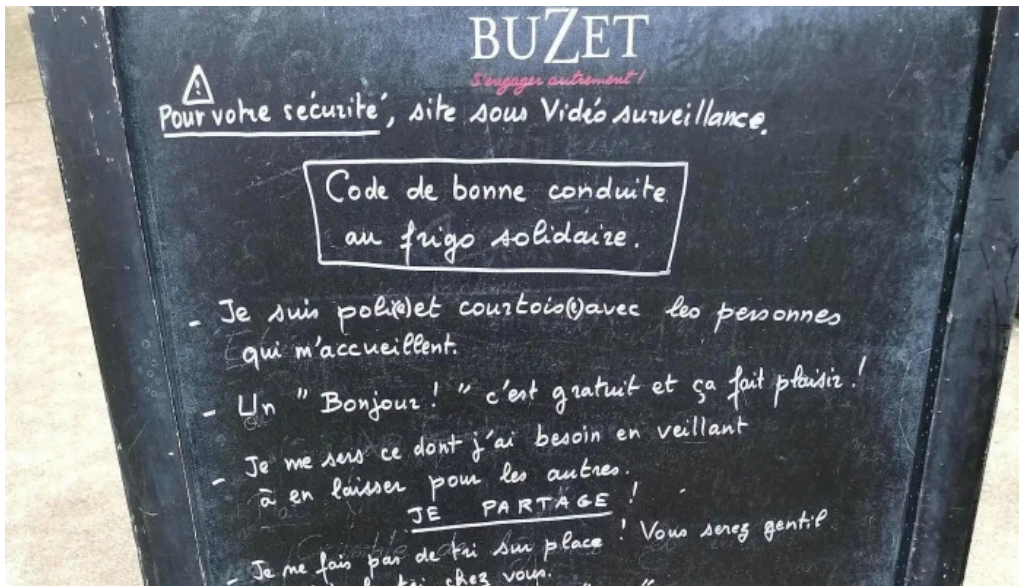 BUZET
S'engager autrement !
Pour votre sécurité, site sous Vidéo surveillance.
Code de bonne conduite
au frigo solidaire.
- Je suis poli(e) et courtois(e) avec les personnes
qui m'accueillent.
- Un " Bonjour ! " c'est gratuit et ça fait plaisir !
- Je me sers ce dont j'ai besoin en veillant
à en laisser pour les autres.
JE PARTAGE !
- Je ne fais pas de tri sur place ! Vous serez gentil
tri chez vous.